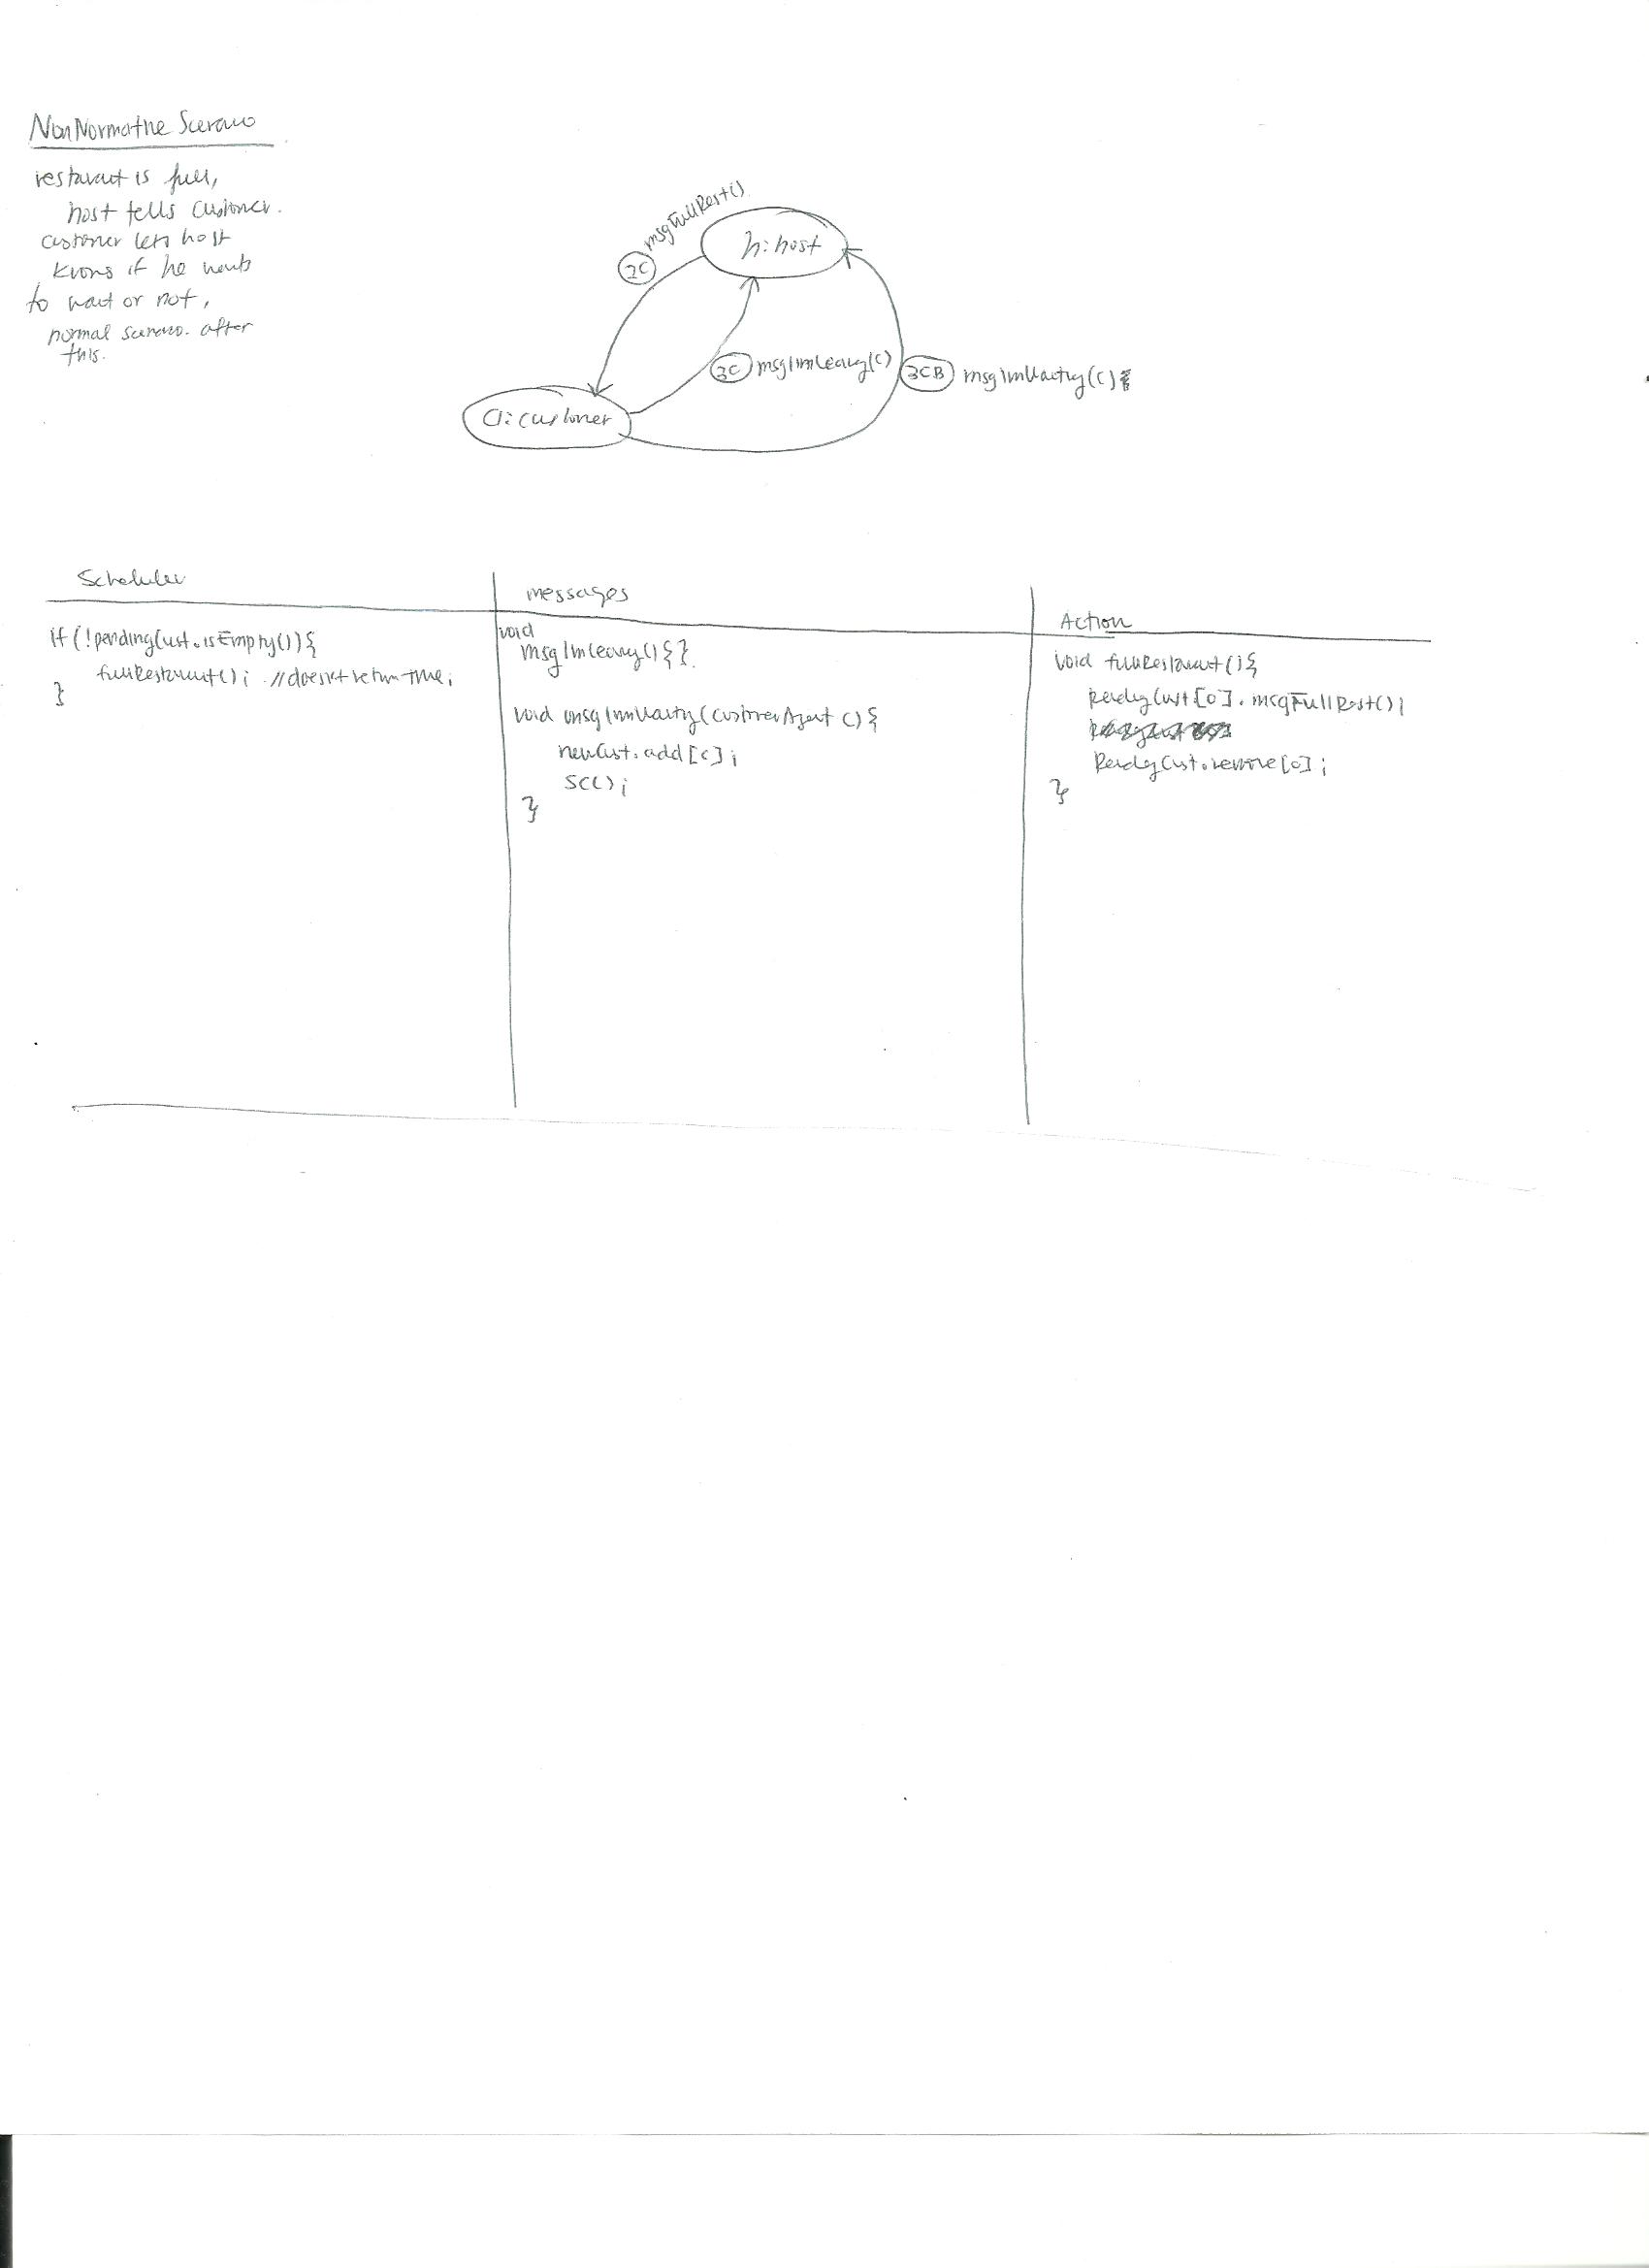 NonNormative Scenario
restaraut is full,
host tells customer.
customer lets host
knows if he wants
to wait or not,
normal scenario. after
this.
2C msgFullRest()
h: host
3C msgImLeaving(C)
3CB msgImWaiting(C){
C1: customer
Scheduler
messages
Action
if(!pendingCust.isEmpty()){
fullRestaraunt(); //doesn't return true;
}
void
msgImLeaving(){}.
void msgImWaiting(CustomerAgent C){
newCust.add[c];
SC();
}
void fullRestaraunt(){
PendingCust[0].msgFullRest();
PendingCust.remove[0];
}